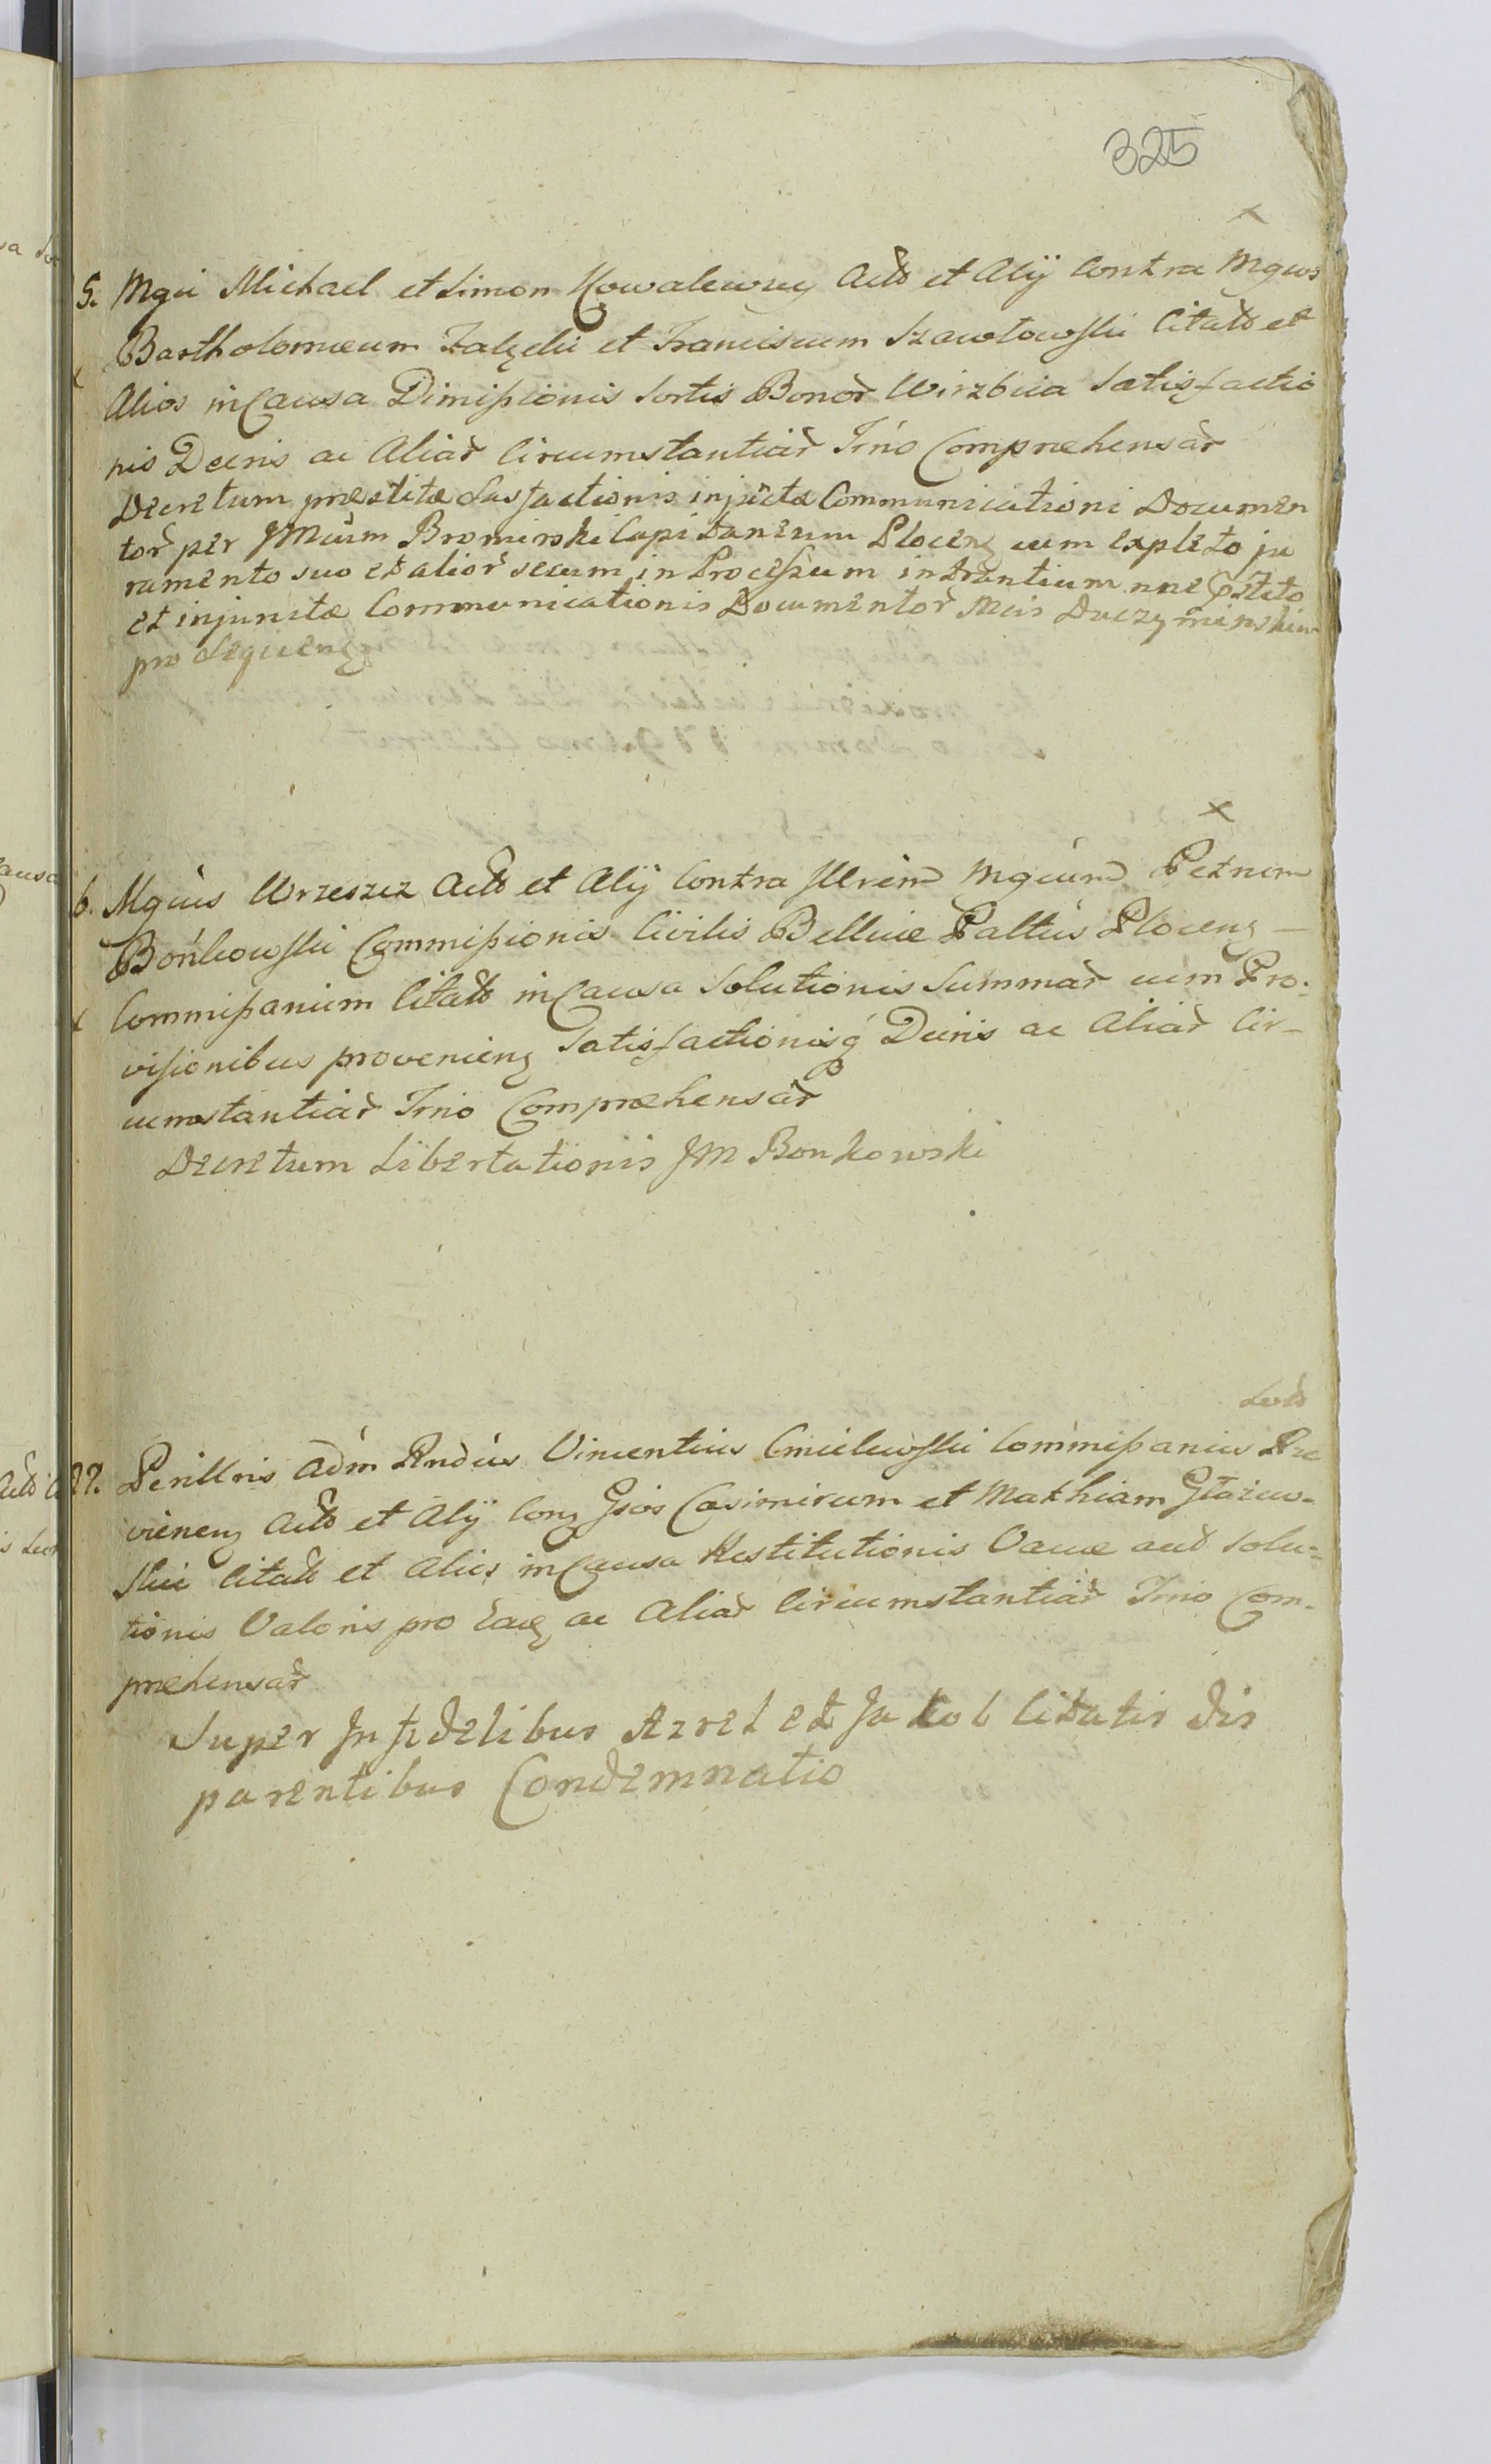 325
x
5. Mgci Michael et Simon Kowalewscy Actō et Alÿ Contra Mgcos
Bartholomæum Załęski et Franciscum Szawłowski Citatō et
Alios in Causa Dimissionis Sortis Bonoř Wirzbica Satisfactio
nis Decris ac Aliař Circumstantiař Trno Compræhensař
Decretum præstitæ Satisfactionis injūctæ Communicationi Documen
toř per JMcūm Bromirski Capitaneum Plocenȝ cum expleto ju
ramento suo et alioř secum in Processum intrantium nne
et injunctæ Communicationis Documentoř Mcis
pro Sequienȝ
x
6. Mgcus Wrzeszcz Actō et Alÿ Contra Mgcum Petrum
Bońkowski Commissionis Civilis Bellicæ Paltūs Plocenȝ
Commissarium Citatō in Causa Solutionis Summař cum Pro:
visionibus provenienȝ Satisfactionisq́ Decris ac Aliař Cir-
cumstantiař Trno Compræhensař
Decretum Libertationis JM Bonkowski
27. Perillris Adm Rndus Vincentius Cmielewski Commissarius
Actō et Alÿ Conȝ Gsos Casimirum et Mathiam
ski Citatō et Alios in Causa Restitutionis Vacæ aut Solu=
tionis Valoris pro Eaȩ ac Aliař Circumstantiař Trno Com-
præhensař
Super Infidelibus Azrel et Jakob Citatis
parentibus Condemnatio